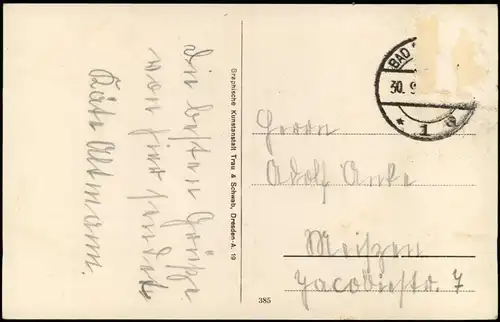 Die besten Grüße
von hier sendet
Käte Altmann.
Graphische Kunstanstalt Trau & Schwab, Dresden-A. 19
385
BAD
30. 9
* 1 a
Herrn
Adolf Anke
Meißen
Jacobistr. 7